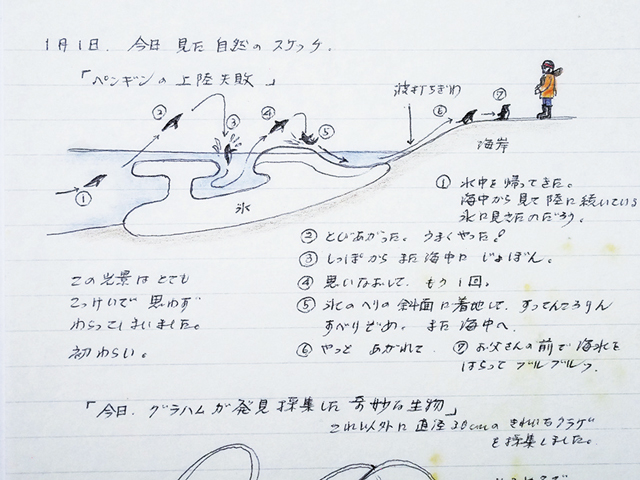 1月1日. 今日 見た 自然の スケッチ.
「ペンギンの 上陸 失敗 」
波打ちぎわ
① ② ③ ④ ⑤ ⑥ ⑦
海岸
氷
① 氷中を 帰ってきた。
海中から 見て 陸に 続いている
氷に見えたのだろう。
② とびあがった。うまくやった。
③ しっぽから また 海中に じょぼん。
④ 思いなおして. もう1回。
⑤ 氷のへりの 斜面に 着地して. すってんころりん
すべりどめ. また 海中へ.
⑥ やっと あがれて. ⑦ お父さんの 前で 海水を
はらって ブルブルッ
この光景は とても
こっけいで 思わず
わらってしまいました。
初わらい。
「今日. グラハムが 発見 採集した 奇妙な 生物」
これ以外に 直径 30cmの きれいなクラゲ
を採集しました。